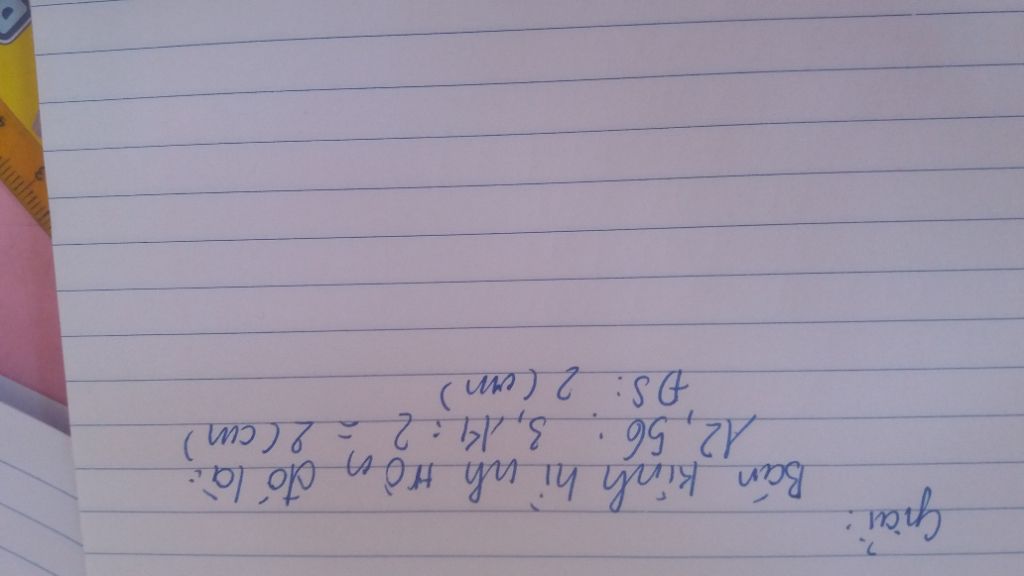 Giải:
Bán kính hình tròn đó là:
12,56 : 3,14 : 2 = 2 (cm)
ĐS: 2 (cm)